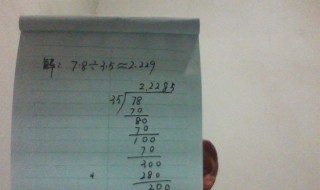 解：7.8÷3.5≈2.229
2.2285
35 78
70
80
70
100
70
300
280
200